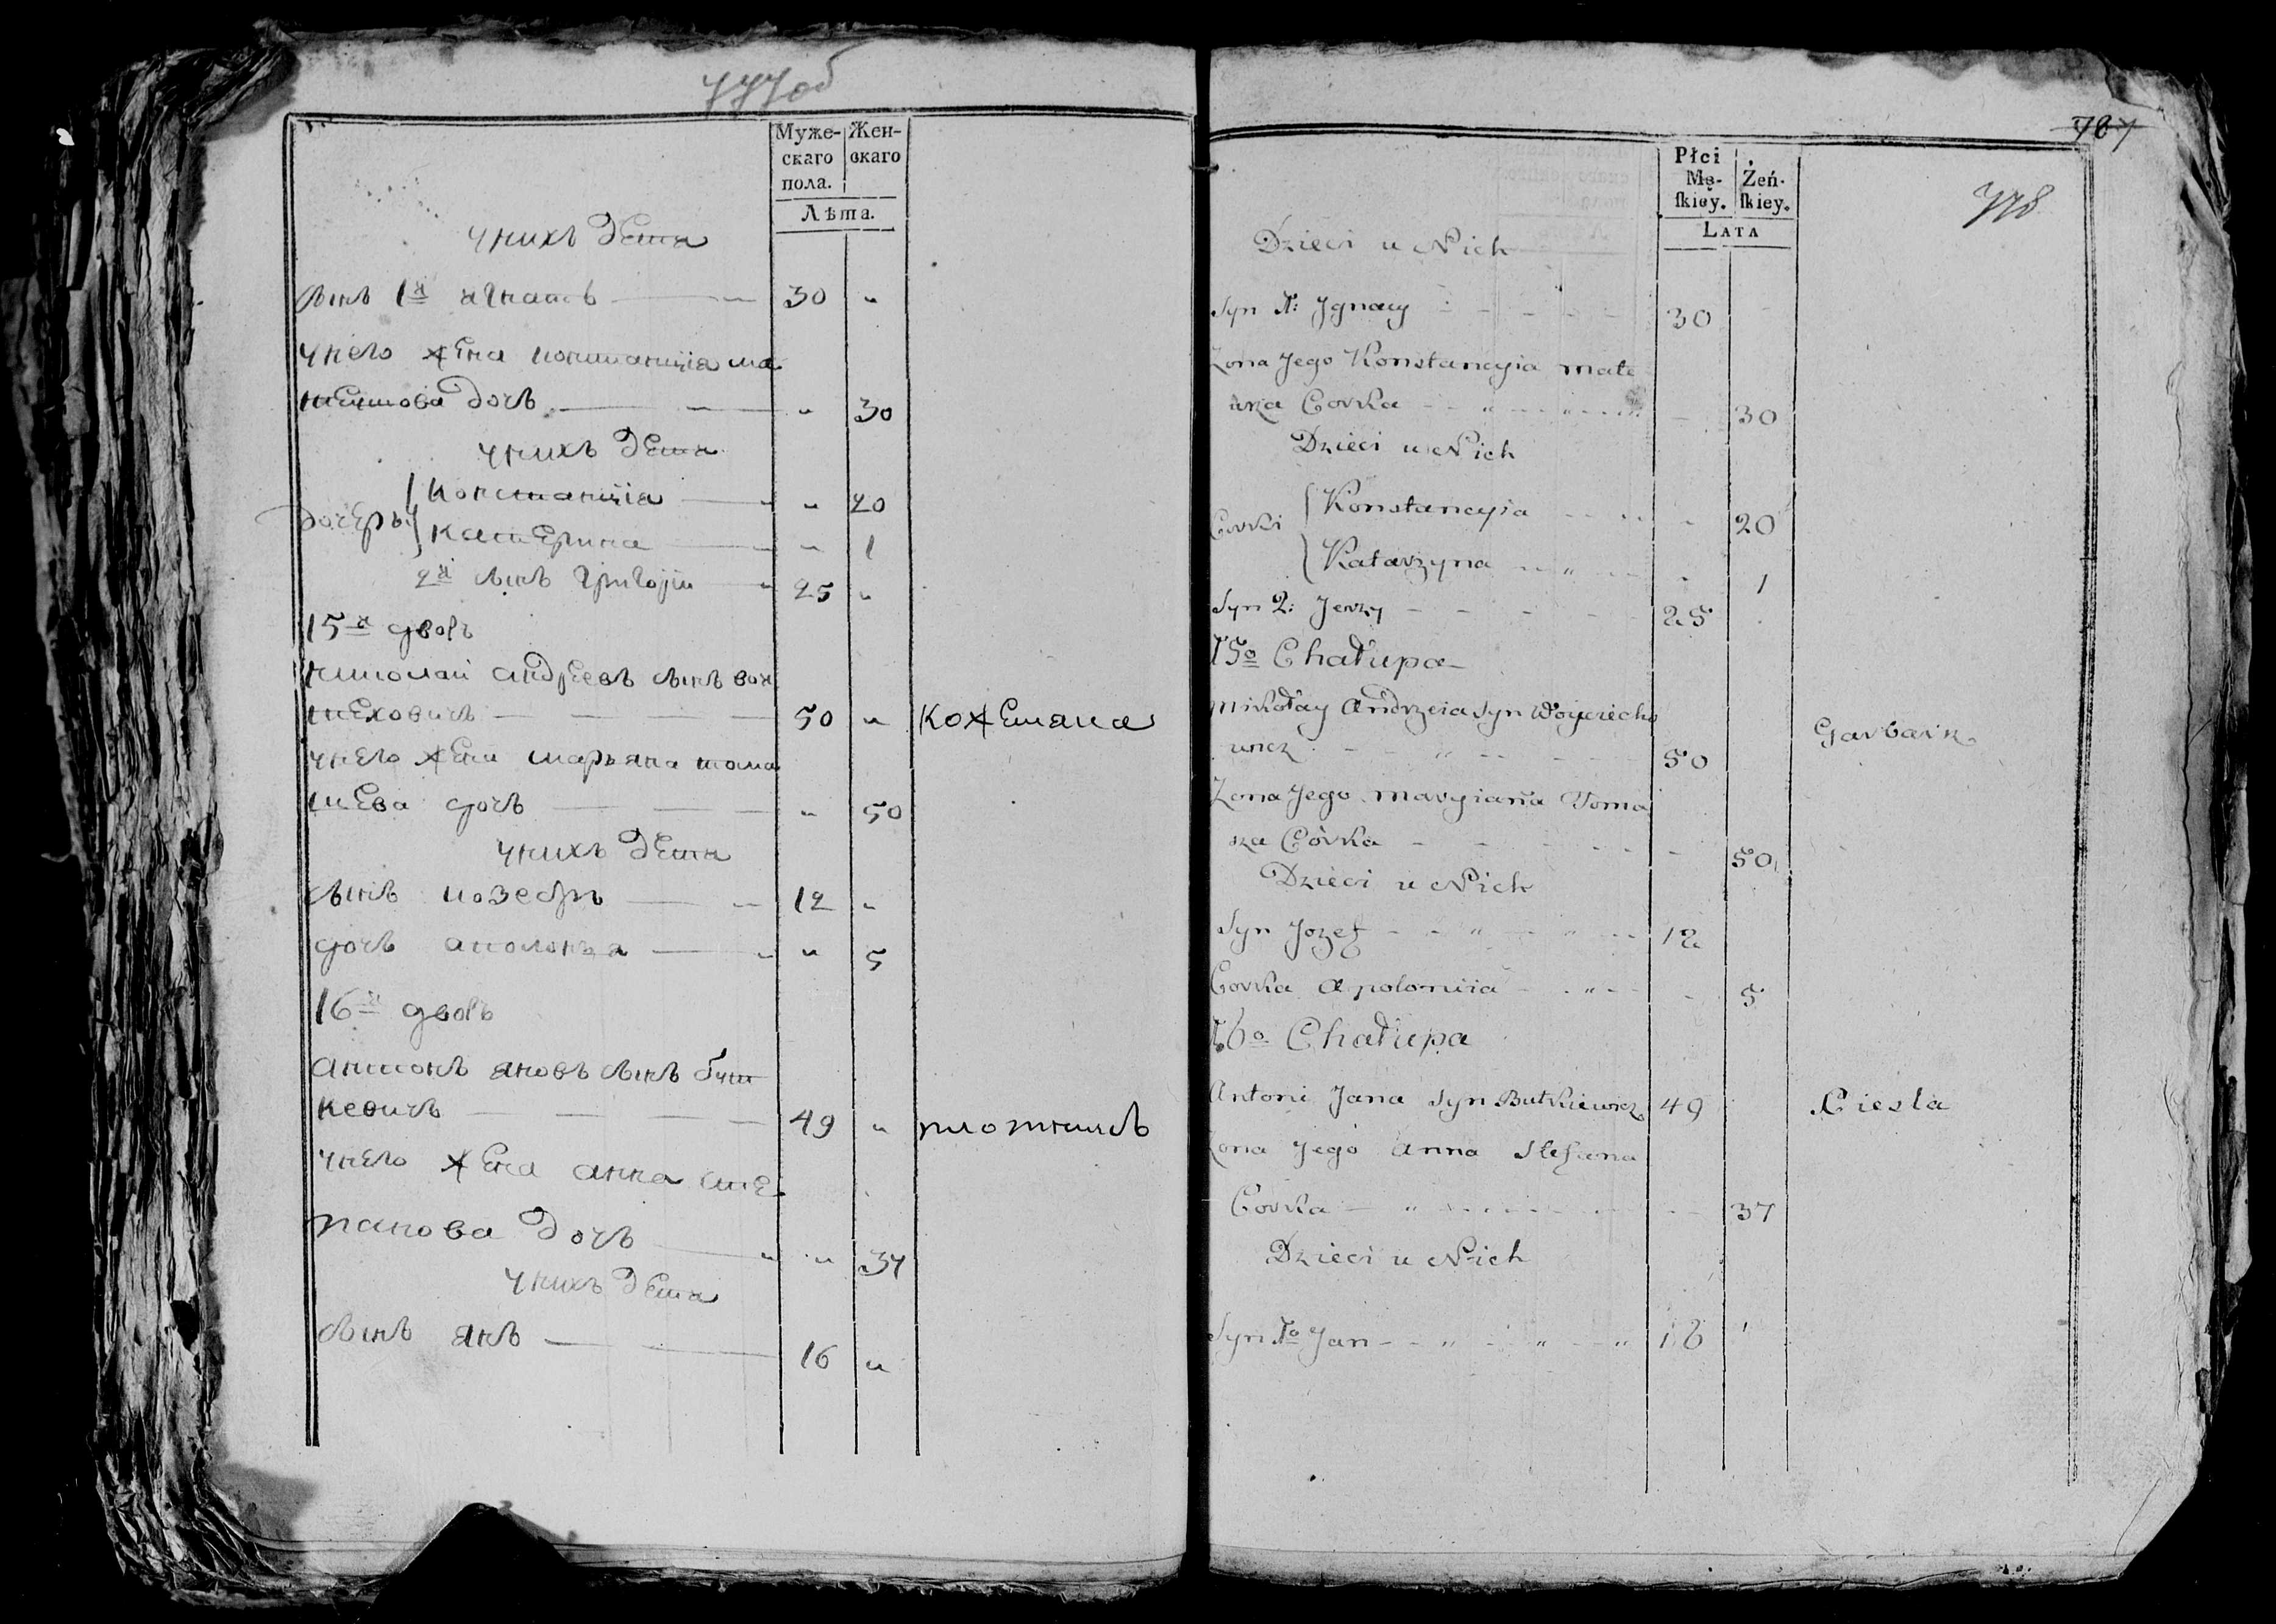 777об
Муже- Жен-
скаго скаго
пола.
Лѣта.
у нихъ дети
сынъ 1й игнатъ 30 "
у него жена констанция ма
теушова дочъ " 30
у нихъ дети
дочеры { Констанция " 20
Катерина " 1
2й сынъ григорiи 25 "
15й дворъ
николай андреевъ сынъ вой
техович 50 " кожемяка
у него жена марьяна тома
шева дочъ " 50
у нихъ дети
сынъ иозефъ 12 "
дочъ аполонья " 5
16й дворъ
антонъ яновъ сынъ бут
кевичъ 49 " плотникъ
у него жена анна сте
панова дочъ " 37
у нихъ дети
сынъ янъ 16 "
787
778
Płci
Mę- Żeń-
skiey. skiey.
LATA
Dzieci u Nich
Syn 1: Jgnacy 30
Zona Jego Konstancyia mate
usza Corka 30
Dzieci u Nich
Corki { Konstancyia 20
Katarzyna 1
Syn 2: Jerzy 25
15o Chałupa
Mikołay Andrzeia Syn Woyciecho
wicz 50 Garbarz
Zona Jego maryiana Toma
sza Córka 50
Dzieci u Nich
Syn Jozef 12
Corka Apoloniia 5
16o Chałupa
Antoni Jana Syn Butkiewicz 49 Ciesla
Zona Jego Anna Stefana
Corka 37
Dzieci u Nich
Syn 1o Jan 16